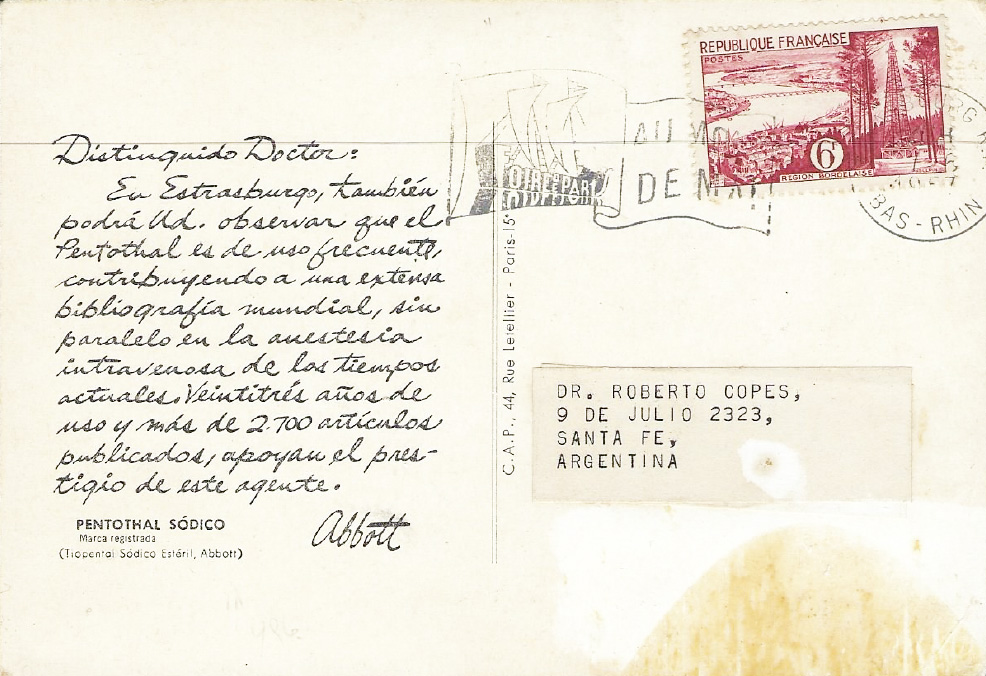 Distinguido Doctor:
En Estrasburgo, también
podrá Ud. observar que el
Pentothal es de uso frecuente,
contribuyendo a una extensa
bibliografía mundial, sin
paralelo en la anestesia
intravenosa de los tiempos
actuales. Veintitrés años de
uso y más de 2.700 artículos
publicados, apoyan el pres-
tigio de este agente.
Abbott
PENTOTHAL SÓDICO
Marca registrada
(Tiopental Sódico Estéril, Abbott)
C.A.P., 44, Rue Letellier - Paris-15e
REPUBLIQUE FRANÇAISE
POSTES
6F
REGION BORDELAISE
DE
BAS-RHIN
DR. ROBERTO COPES,
9 DE JULIO 2323,
SANTA FE,
ARGENTINA